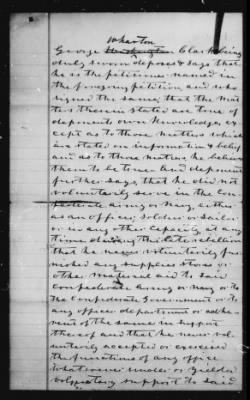 Wharton
George Washington Clark being
duly sworn deposes & says that
he is the petitioner named in
the foregoing petition and who
signed the same; that the mat
ters therein stated are true of
deponents own knowledge, ex
cept as to those matters which
are stated on information & belief
and as to those matters he believes
them to be true. And deponent
further says, that he did not
voluntarily serve in the Con
federate Army or Navy, either
as an officer, soldier or sailor
or in any other capacity at any
time during the late rebellion
that he never voluntarily fur
nished any supplies stores or
other material aid to said
Confederate army or navy or to
the Confederate Government or to
any officer department or adhe
rent of the same in support
thereof and that he never vol
untarily accepted or exercised
the functions of any office
whatsoever under or yielded
voluntary support to said